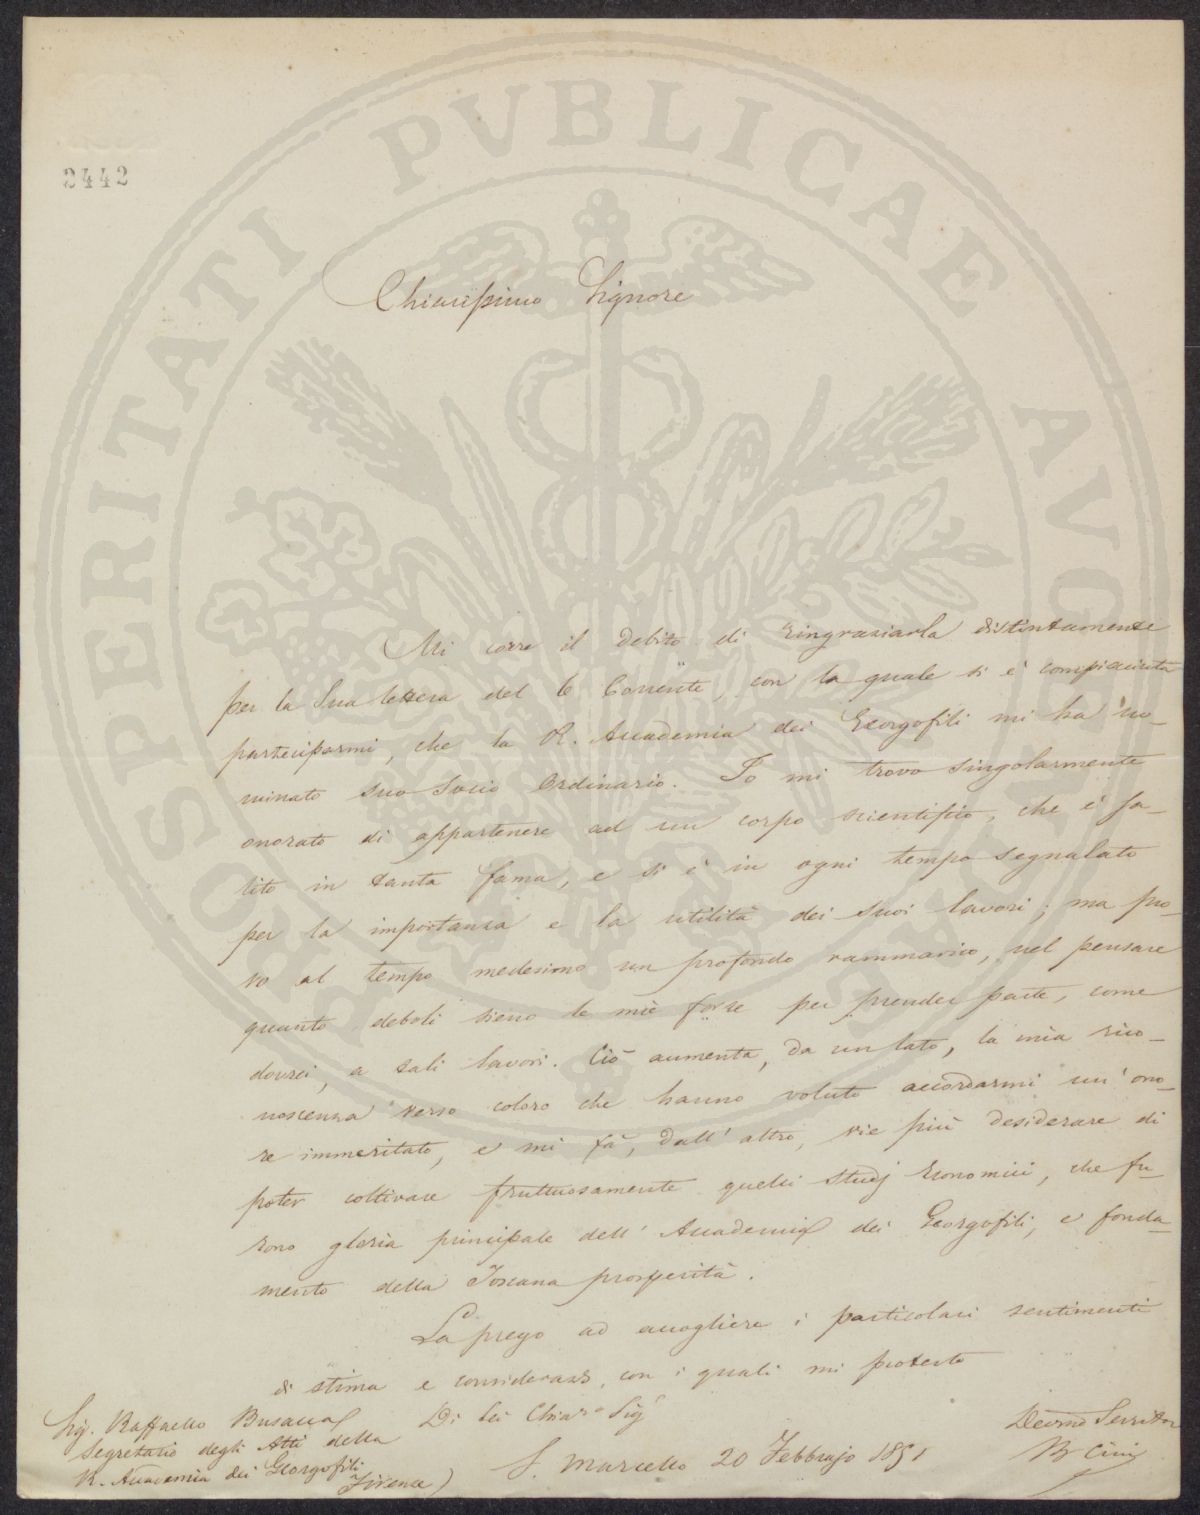 2442
PROSPERITATI PVBLICAE AVGENDAE
Chiarissimo Signore
Mi corre il debito di ringraziarla distintamente
per la Sua lettera del 6 Corrente, con la quale si è compiaciuta
parteciparmi, che la R. Accademia dei Georgofili mi ha no-
minato suo Socio Ordinario. Io mi trovo singolarmente
onorato di appartenere ad un corpo scientifico, che è sa-
lito in tanta fama, e si è in ogni tempo segnalato
per la importanza e la utilità dei suoi lavori; ma pro-
vo al tempo medesimo un profondo rammarico, nel pensare
quanto deboli sieno le mie forze per prender parte, come
dovrei, a tali lavori. Ciò aumenta, da un lato, la mia rico-
noscenza verso coloro che hanno voluto accordarmi un' ono-
re immeritato, e mi fà, dall' altro, vie più desiderare di
poter coltivare fruttuosamente quelli studj Economici, che fu-
rono gloria principale dell' Accademia dei Georgofili, e fonda-
mento della Toscana prosperità.
La prego ad accogliere i particolari sentimenti
di stima e consideraze, con i quali mi protesto
Di Lei Chiarmo Sigr
Sig. Raffaello Busacca
Segretario degli Atti della
R. Accademia dei Georgofili
Firenze)
S. Marcello 20 Febbrajo 1851
Devmo Servitor
B Cini